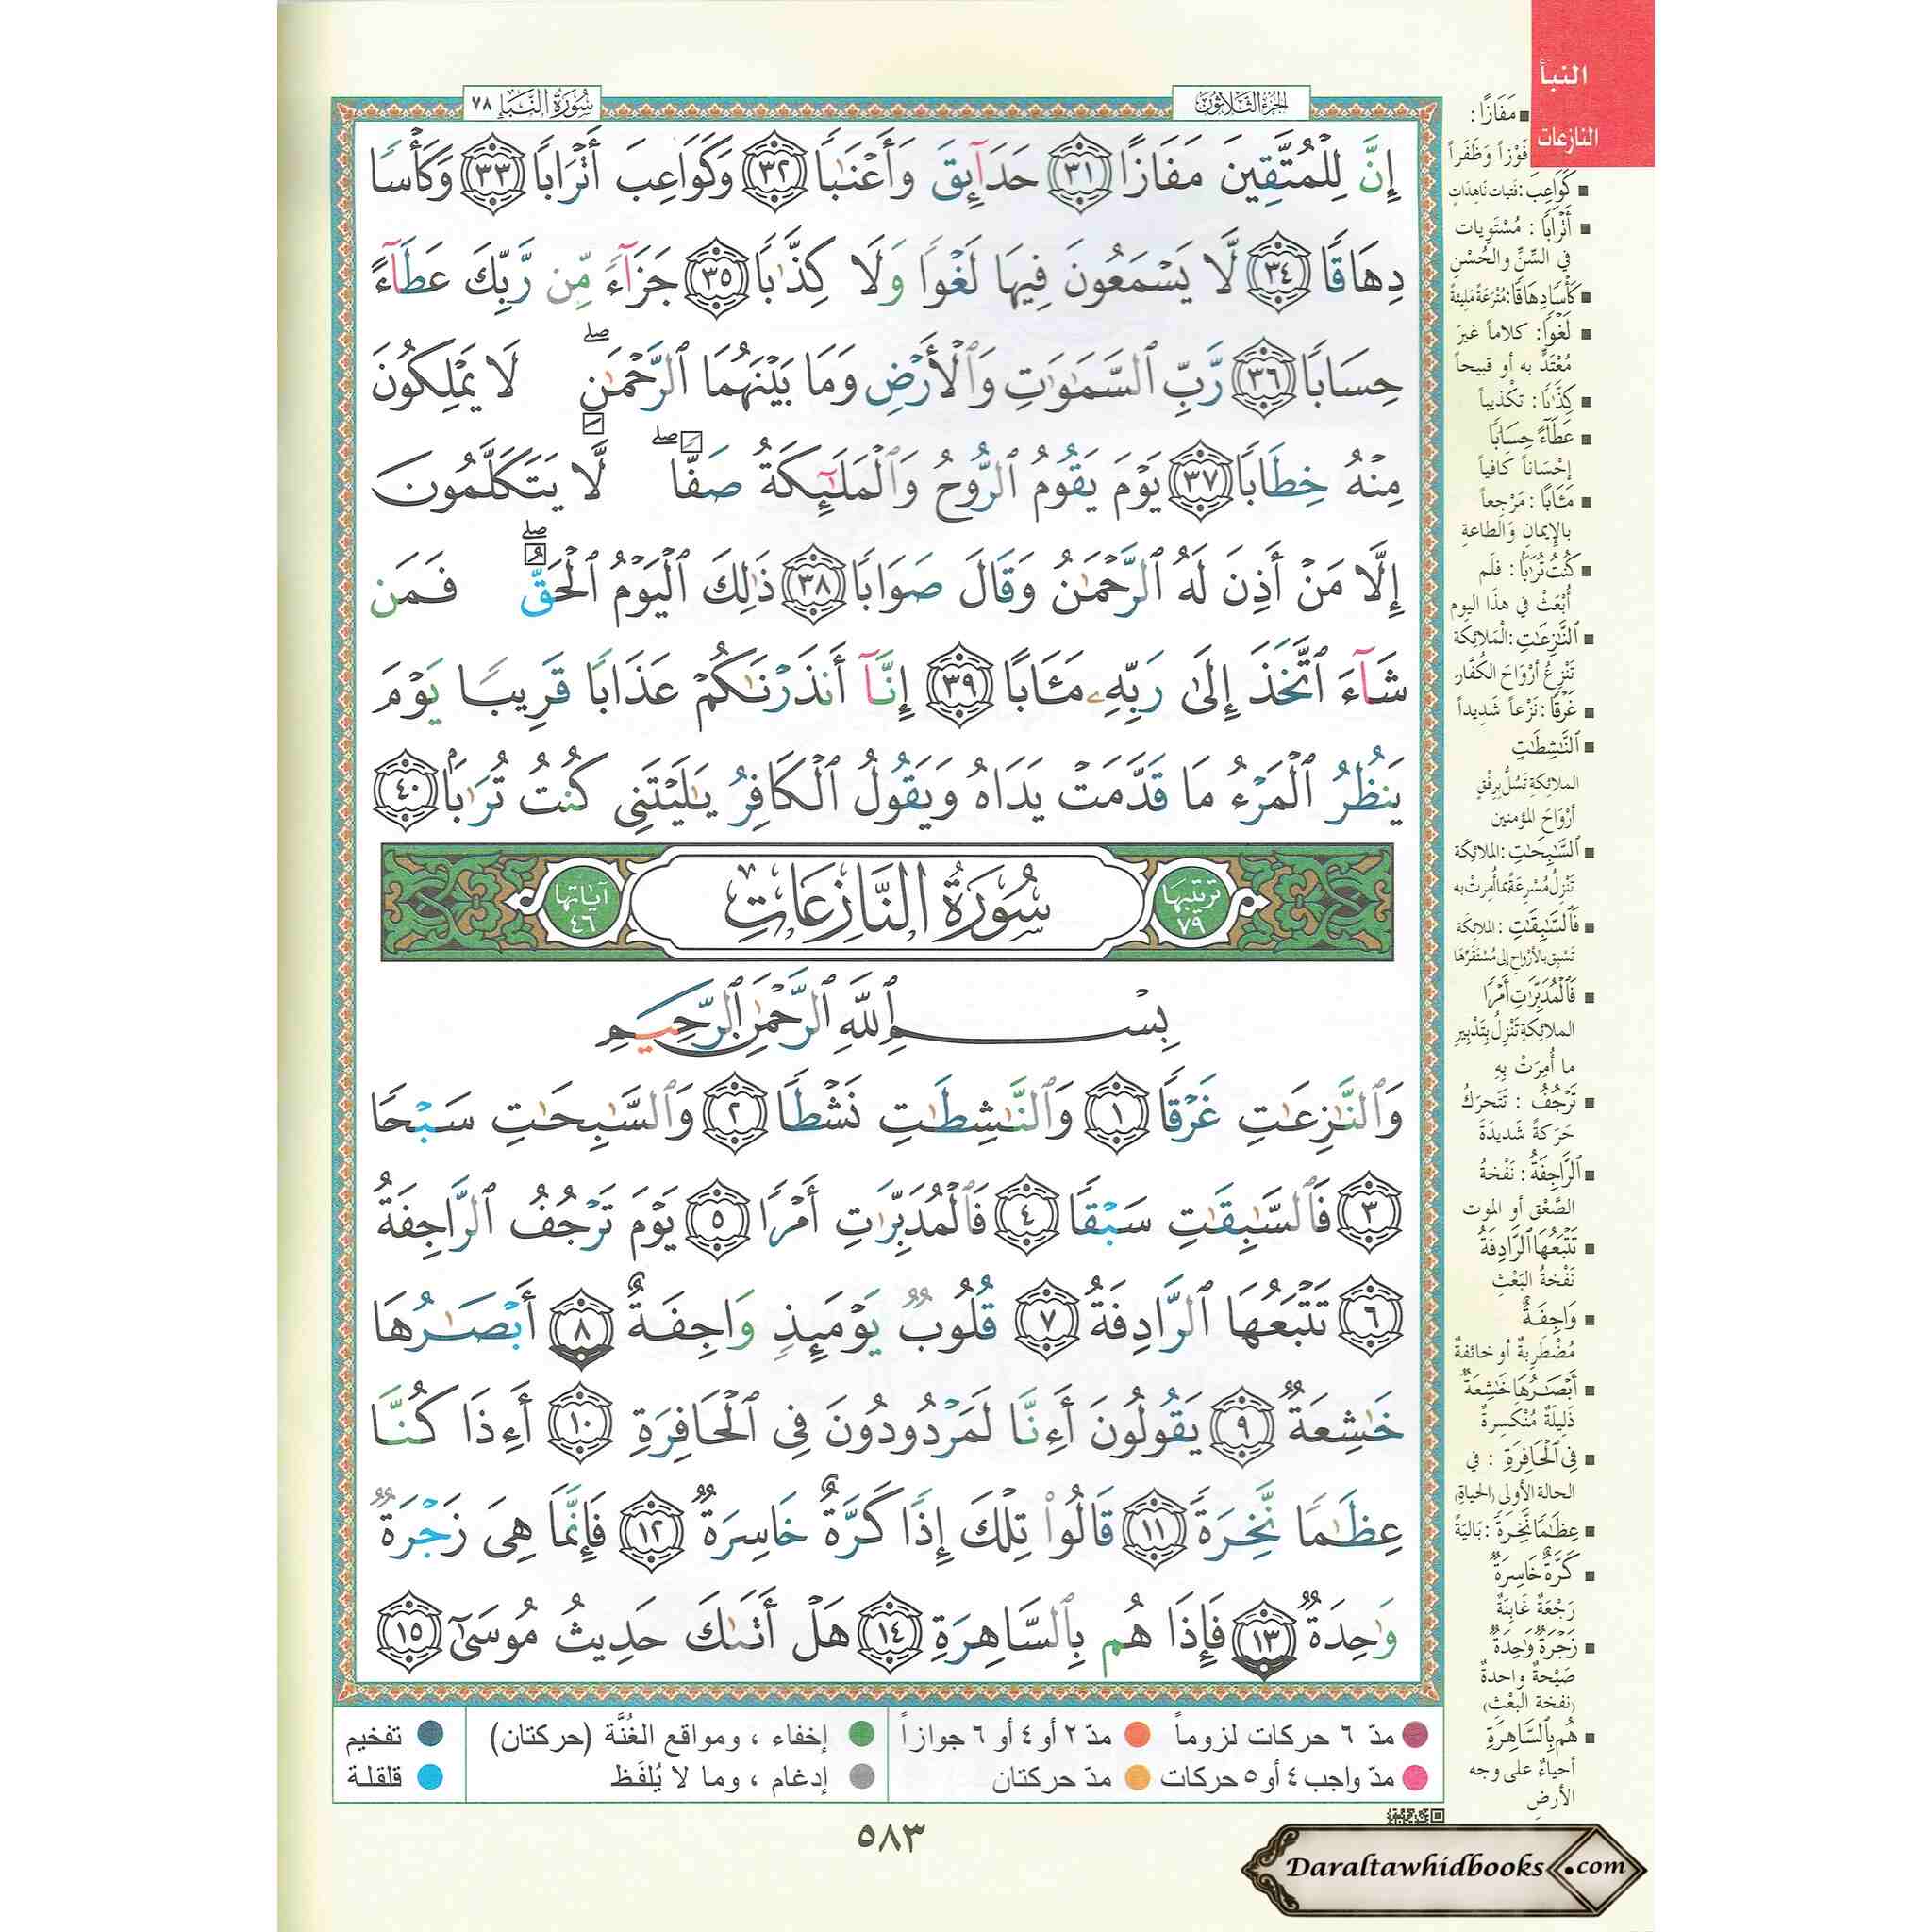 النبأ
النازعات
الجزء الثلاثون
سُورَةُ النَّبَإِ ٧٨
إِنَّ لِلْمُتَّقِينَ مَفَازًا ٣١ حَدَآئِقَ وَأَعْنَٰبًا ٣٢ وَكَوَاعِبَ أَتْرَابًا ٣٣ وَكَأْسًا
دِهَاقًا ٣٤ لَّا يَسْمَعُونَ فِيهَا لَغْوًا وَلَا كِذَّٰبًا ٣٥ جَزَآءً مِّن رَّبِّكَ عَطَآءً
حِسَابًا ٣٦ رَّبِّ ٱلسَّمَٰوَٰتِ وَٱلْأَرْضِ وَمَا بَيْنَهُمَا ٱلرَّحْمَٰنِ ۖ لَا يَمْلِكُونَ
مِنْهُ خِطَابًا ٣٧ يَوْمَ يَقُومُ ٱلرُّوحُ وَٱلْمَلَٰٓئِكَةُ صَفًّا ۖ لَّا يَتَكَلَّمُونَ
إِلَّا مَنْ أَذِنَ لَهُ ٱلرَّحْمَٰنُ وَقَالَ صَوَابًا ٣٨ ذَٰلِكَ ٱلْيَوْمُ ٱلْحَقُّ ۖ فَمَن
شَآءَ ٱتَّخَذَ إِلَىٰ رَبِّهِۦ مَـَٔابًا ٣٩ إِنَّآ أَنذَرْنَٰكُمْ عَذَابًا قَرِيبًا يَوْمَ
يَنظُرُ ٱلْمَرْءُ مَا قَدَّمَتْ يَدَاهُ وَيَقُولُ ٱلْكَافِرُ يَٰلَيْتَنِى كُنتُ تُرَٰبًۢا ٤٠
ترتيبها ٧٩ سُورَةُ النَّازِعَاتِ آياتها ٤٦
بِسْمِ ٱللَّهِ ٱلرَّحْمَٰنِ ٱلرَّحِيمِ
وَٱلنَّٰزِعَٰتِ غَرْقًا ١ وَٱلنَّٰشِطَٰتِ نَشْطًا ٢ وَٱلسَّٰبِحَٰتِ سَبْحًا
٣ فَٱلسَّٰبِقَٰتِ سَبْقًا ٤ فَٱلْمُدَبِّرَٰتِ أَمْرًا ٥ يَوْمَ تَرْجُفُ ٱلرَّاجِفَةُ
٦ تَتْبَعُهَا ٱلرَّادِفَةُ ٧ قُلُوبٌ يَوْمَئِذٍ وَاجِفَةٌ ٨ أَبْصَٰرُهَا
خَٰشِعَةٌ ٩ يَقُولُونَ أَءِنَّا لَمَرْدُودُونَ فِى ٱلْحَافِرَةِ ١٠ أَءِذَا كُنَّا
عِظَٰمًا نَّخِرَةً ١١ قَالُوا۟ تِلْكَ إِذًا كَرَّةٌ خَاسِرَةٌ ١٢ فَإِنَّمَا هِىَ زَجْرَةٌ
وَٰحِدَةٌ ١٣ فَإِذَا هُم بِٱلسَّاهِرَةِ ١٤ هَلْ أَتَىٰكَ حَدِيثُ مُوسَىٰٓ ١٥
مَفَازًا :
فَوْزاً وَظَفَراً
كَوَاعِبَ : فَتيات نَاهِدَاتٍ
أَتْرَابًا : مُسْتَوِيات
في السِّنِّ والحُسْنِ
كَأْسًا دِهَاقًا : مُتْرَعَةً مَلِيئةً
لَغْوًا : كلاماً غيرَ
مُعْتَدٍّ به أو قبيحاً
كِذَّٰبًا : تكْذيباً
عَطَآءً حِسَابًا
إحْسَاناً كَافياً
مَـَٔابًا : مَرْجِعاً
بالإيمانِ والطاعةِ
كُنتُ تُرَٰبًا : فلَم
أُبْعَثْ في هذَا اليوم
ٱلنَّٰزِعَٰتِ : الْمَلائِكَة
تَنْزِعُ أرْوَاحَ الكُفَّار
غَرْقًا : نَزْعاً شَدِيداً
ٱلنَّٰشِطَٰتِ
الملائِكةِ تَسُلُّ بِرِفْقٍ
أرْوَاحَ المؤمنين
ٱلسَّٰبِحَٰتِ : الملائِكَة
تَنْزِلُ مُسْرِعَةً بما أُمِرتْ به
فَٱلسَّٰبِقَٰتِ : الملائِكَة
تَسْبِق بالأرْواحِ إلى مُسْتَقَرِّهَا
فَٱلْمُدَبِّرَٰتِ أَمْرًا
الملائِكةِ تَنْزِلُ بِتَدْبِيرِ
ما أُمِرَتْ بِهِ
تَرْجُفُ : تَتَحرَكُ
حَرَكةً شَديدَةً
ٱلرَّاجِفَةُ : نَفْخةُ
الصَّعْق أو الموت
تَتْبَعُهَا ٱلرَّادِفَةُ
نَفْخةُ البَعْثِ
وَاجِفَةٌ
مُضْطَرِبةٌ أو خائفةٌ
أَبْصَٰرُهَا خَٰشِعَةٌ
ذَلِيلَةٌ مُنْكَسِرةٌ
فِى ٱلْحَافِرَةِ : في
الحالة الأولى (الحياة)
عِظَٰمًا نَّخِرَةً : بَاليَةً
كَرَّةٌ خَاسِرَةٌ
رَجْعَةٌ غَابِنَةٌ
زَجْرَةٌ وَٰحِدَةٌ
صَيْحةٌ واحدةٌ
(نفخة البعْث)
هُم بِٱلسَّاهِرَةِ
أحياءٌ على وجه
الأرضِ
مدّ ٦ حركات لزوماً
مدّ ٢ أو ٤ أو ٦ جوازاً
إخفاء ، ومواقع الغُنَّة (حركتان)
تفخيم
مدّ واجب ٤ أو ٥ حركات
مدّ حركتان
إدغام ، وما لا يُلفَظ
قلقلة
٥٨٣
Daraltawhidbooks.com